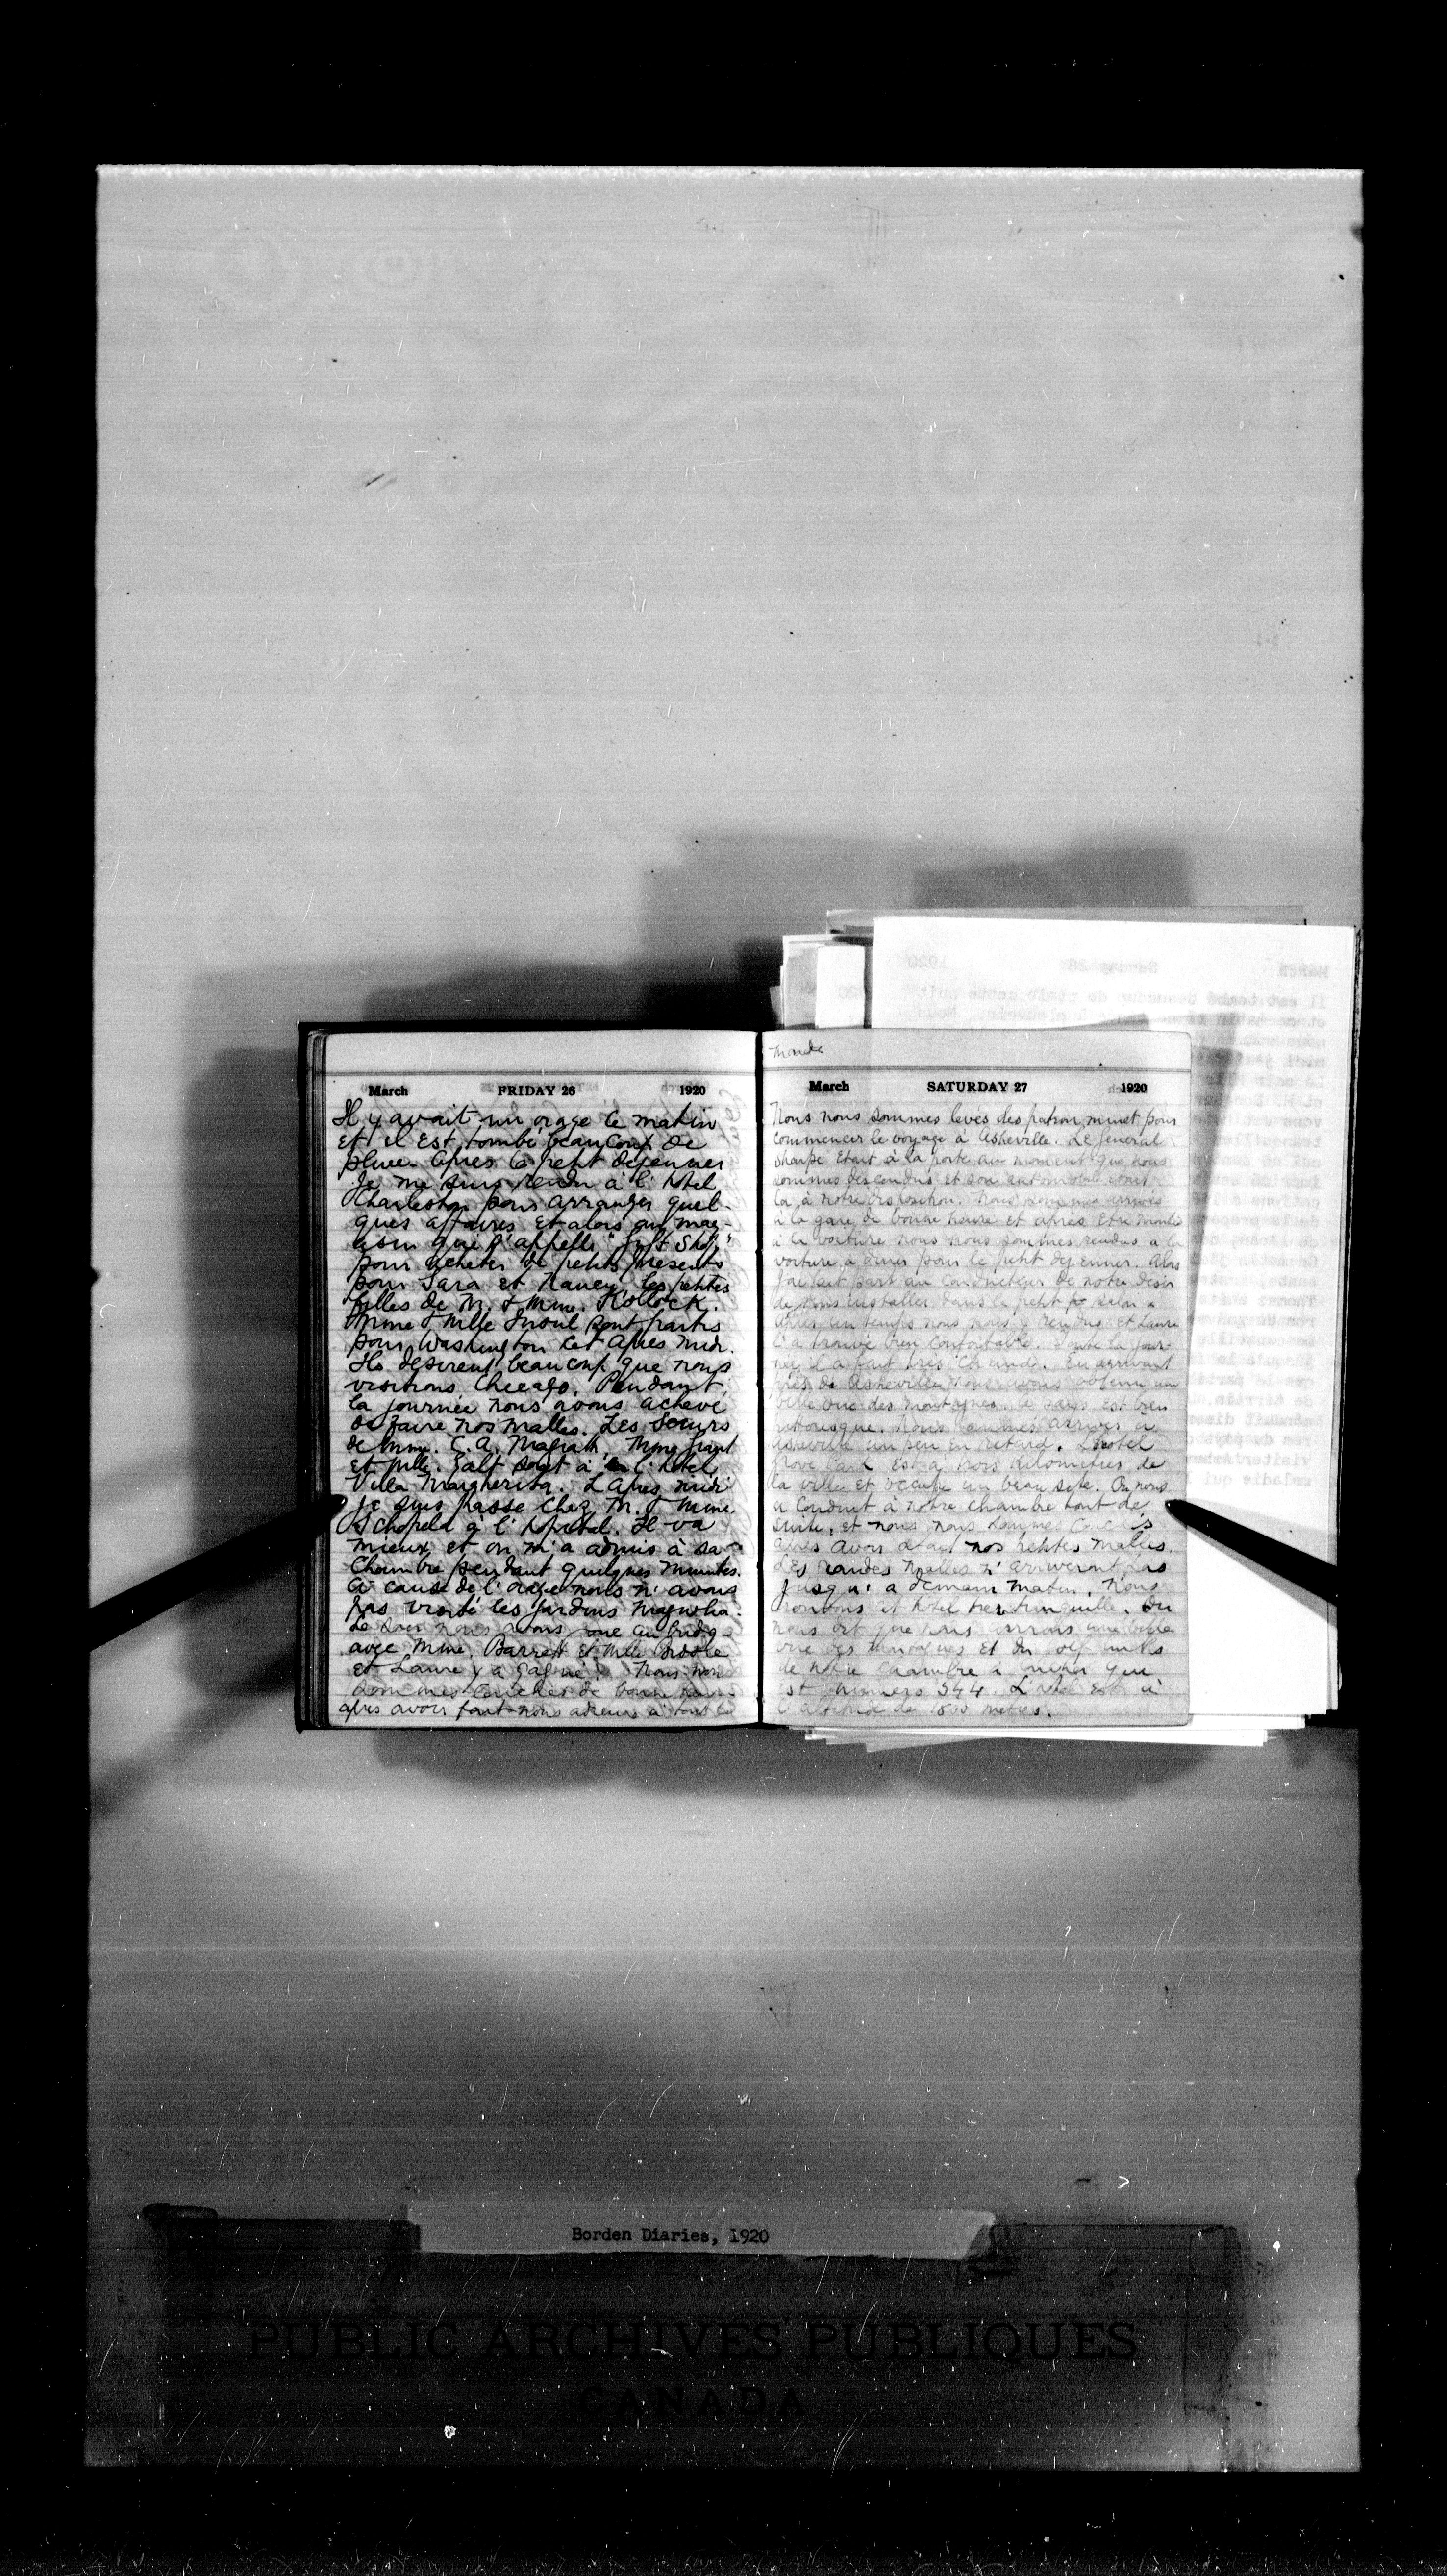 March FRIDAY 26 1920
Il y avait un orage le matin
et il est tombé beaucoup de
pluie. Après le petit dejeuner
je me suis rendu à l'hotel
Charleston pour arranger quel-
ques affaires et alors au mag-
asin qui s'appelle "Gift Shop"
pour acheter de petits presents
pour Sara et Nancy les petites
filles de M. & Mme. Kollock.
Mme & Mlle sont partis
pour Washington cet apres midi.
Ils desirent beaucoup que nous
visitions Chicago. Pendant
la journée nous avons achevé
de faire nos malles. Les Soeurs
de Mme. C. A. Magrath, Mme Grant
et Mlle. Galt sont à l'hotel
Villa Margherita. L'après midi
je suis passé chez M. & Mme.
Schofield à l'hopital. Il va
mieux et on m'a admis à sa
chambre pendant quelques minutes.
A cause de l'orage nous n'avons
pas visité les jardins Magnolia.
Le soir nous avons joué au bridge
avec Mme. Barrett et Mlle
et Laure y a gagné. Nous nous
sommes couchés de bonne heure
apres avoir fait nous adieux à tout le
monde
March SATURDAY 27 1920
Nous nous sommes levés des patron minet pour
commencer le voyage à Asheville. Le General
Sharpe etait à la porte au moment que nous
sommes descendus et son automobile etait
là, à notre disposition. Nous sommes arrivés
à la gare de bonne heure et après etre montés
à la voiture nous nous sommes rendus à la
voiture à diner pour le petit dejeuner. Alors
j'ai fait part au conducteur de notre desir
de nous installer dans le petit salon &
après un temps nous nous y rendus et Laure
l'a trouvé bien confortable. Toute la jour-
née il a fait très chaud. En arrivant
près de Asheville nous avons obtenu une
belle vue des montagnes. Le pays est bien
pittoresque. Nous sommes arrivés à
Asheville un peu en retard. L'hotel
Grove Park est à trois kilometres de
la ville et occupe un beau site. On nous
a conduit à notre chambre tout de
suite, et nous nous sommes couchés
après avoir nos petites malles.
Les grandes malles n'arriveront pas
jusqu'à demain matin. Nous
trouvons cet hotel tres tranquille. On
nous dit que nous aurons une belle
vue des montagnes et du golf links
de notre chambre à coucher que
est numero 344. L'hotel est à
l'altitude de 1800 metres.
Borden Diaries, 1920
PUBLIC ARCHIVES PUBLIQUES
CANADA